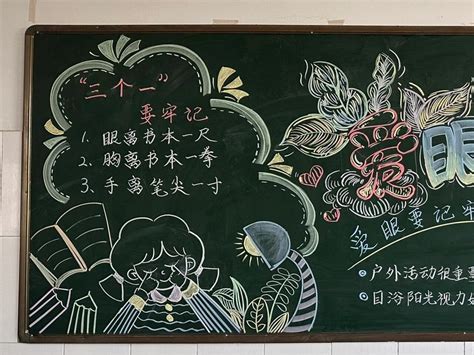 “三个一”
要牢记
1. 眼离书本一尺
2. 胸离书本一拳
3. 手离笔尖一寸
爱眼
爱眼要记牢
户外活动很重要
目浴阳光视力